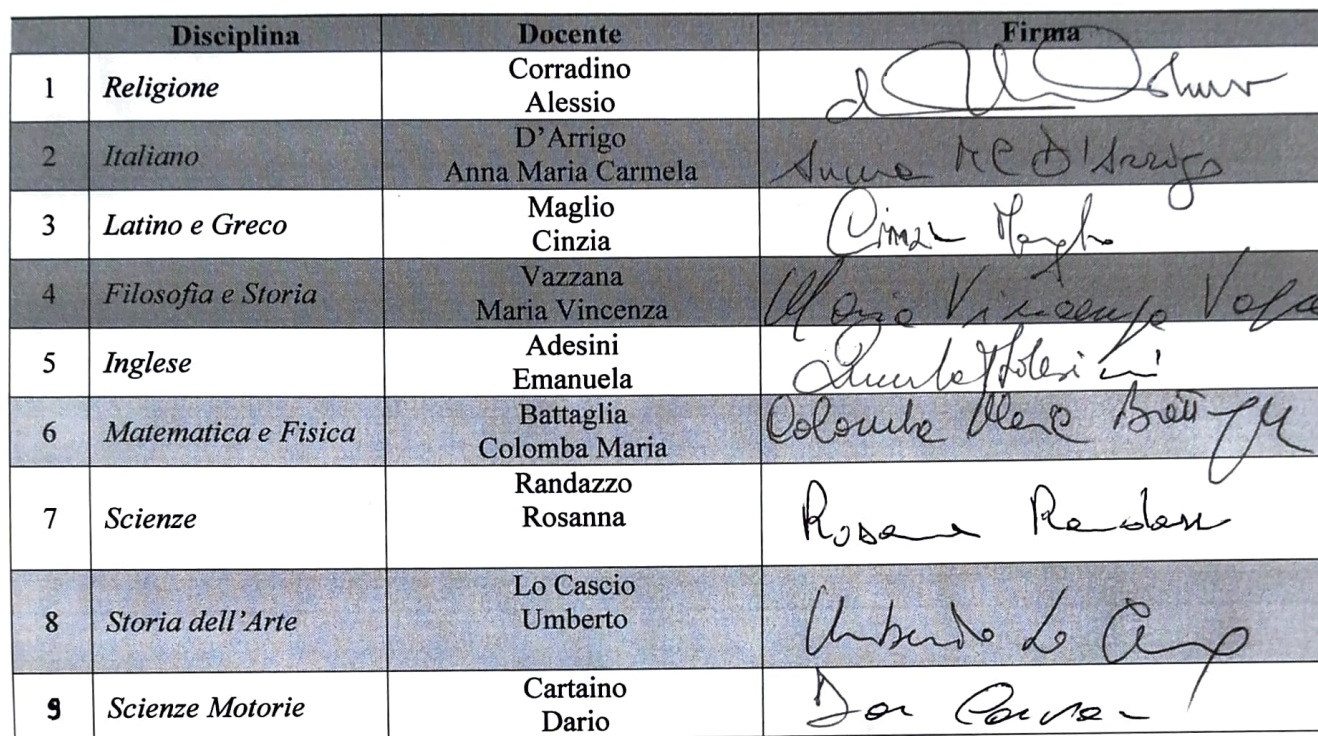 Disciplina Docente Firma
1 Religione Corradino
Alessio
2 Italiano D'Arrigo
Anna Maria Carmela Anna MC D'Arrigo
3 Latino e Greco Maglio
Cinzia Cinzia Maglio
4 Filosofia e Storia Vazzana
Maria Vincenza Maria Vincenza
5 Inglese Adesini
Emanuela Emanuela Adesini
6 Matematica e Fisica Battaglia
Colomba Maria Colomba Maria
7 Scienze Randazzo
Rosanna Rosanna Randazzo
8 Storia dell'Arte Lo Cascio
Umberto Umberto Lo
9 Scienze Motorie Cartaino
Dario